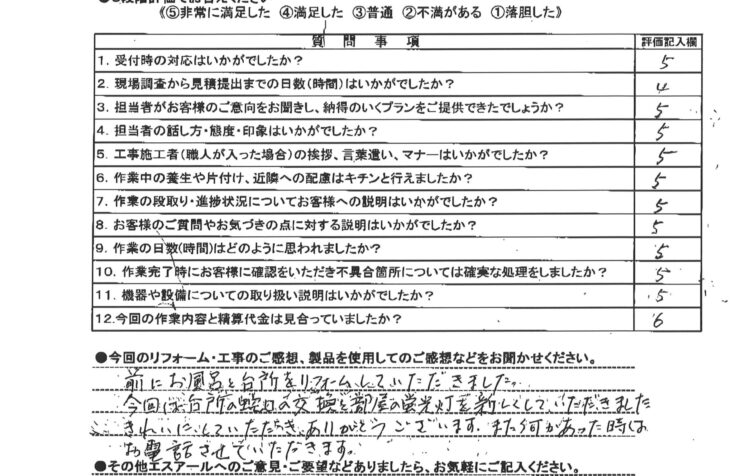 ●5段階評価でお答えください
《⑤非常に満足した ④満足した ③普通 ②不満がある ①落胆した》
質問事項 評価記入欄
1. 受付時の対応はいかがでしたか？ 5
2. 現場調査から見積提出までの日数(時間)はいかがでしたか？ 4
3. 担当者がお客様のご意向をお聞きし、納得のいくプランをご提供できたでしょうか？ 5
4. 担当者の話し方・態度・印象はいかがでしたか？ 5
5. 工事施工者(職人が入った場合)の挨拶、言葉遣い、マナーはいかがでしたか？ 5
6. 作業中の養生や片付け、近隣への配慮はキチンと行えましたか？ 5
7. 作業の段取り・進捗状況についてお客様への説明はいかがでしたか？ 5
8. お客様のご質問やお気づきの点に対する説明はいかがでしたか？ 5
9. 作業の日数(時間)はどのように思われましたか？ 5
10. 作業完了時にお客様に確認をいただき不具合箇所については確実な処理をしましたか？ 5
11. 機器や設備についての取り扱い説明はいかがでしたか？ 5
12.今回の作業内容と精算代金は見合っていましたか？ 6
●今回のリフォーム・工事のご感想、製品を使用してのご感想などをお聞かせください。
前にお風呂と台所をリフォームしていただきました。
今回は台所の蛇口の交換と部屋の蛍光灯を新しくしていただきました
きれいにしていただき、ありがとうございます。また何があった時は
お電話させていただきます。
●その他エスアールへのご意見・ご要望などありましたら、お気軽にご記入ください。